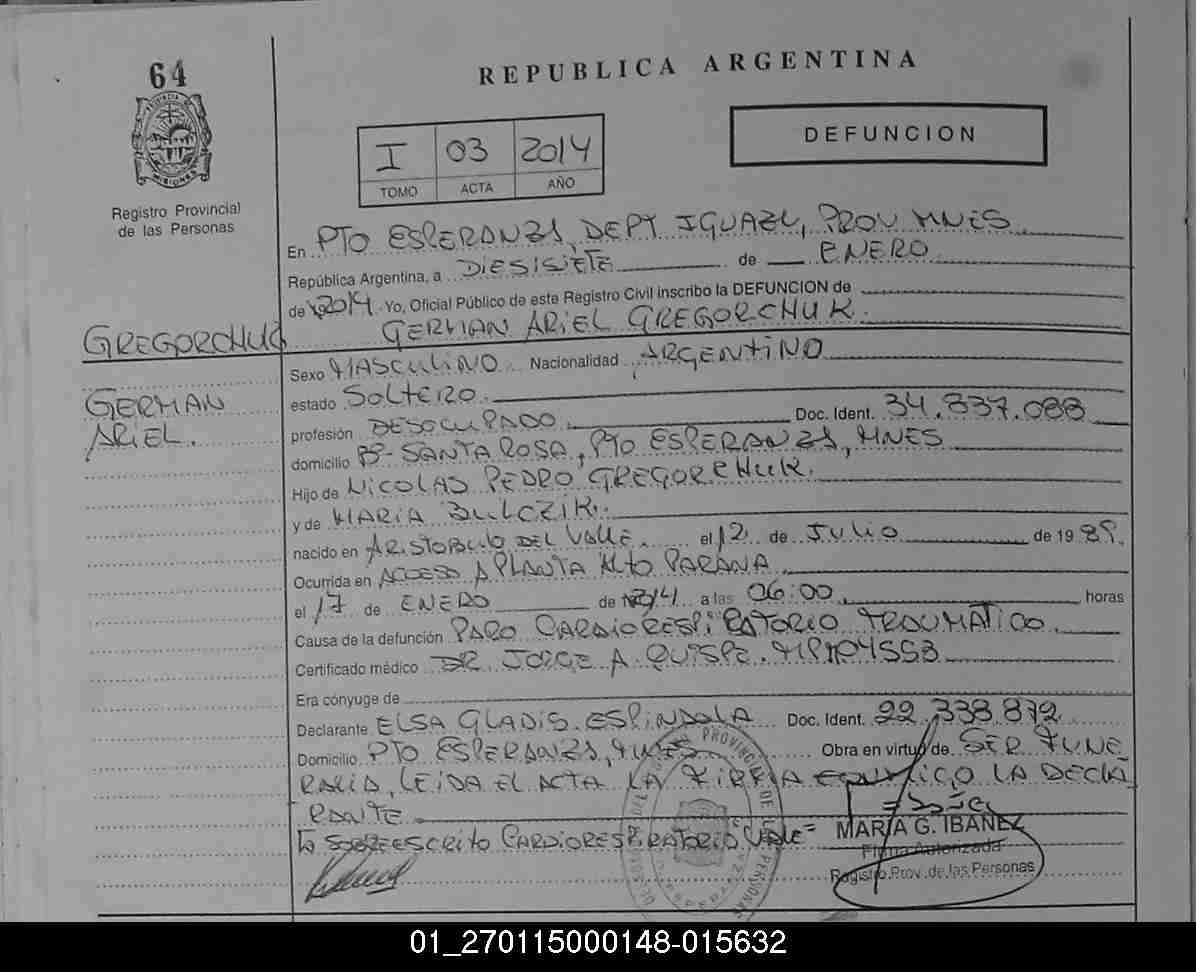 64
REPUBLICA ARGENTINA
DEFUNCION
I 03 2014
TOMO ACTA AÑO
MISIONES
Registro Provincial
de las Personas
En PTO ESPERANZA, DEPT IGUAZU, PROV MNES
República Argentina, a DIESISIETE de ENERO
de 2014 Yo, Oficial Público de este Registro Civil inscribo la DEFUNCION de
GERMAN ARIEL GREGORCHUK
GREGORCHUK
GERMAN
ARIEL.
Sexo MASCULINO Nacionalidad ARGENTINO
estado SOLTERO
profesión DESOCUPADO Doc. Ident. 34.337.088
domicilio Bº SANTA ROSA, PTO ESPERANZA, MNES
Hijo de NICOLAS PEDRO GREGORCHUK
y de MARIA BULCZIK
nacido en ARISTOBULO DEL VALLE. el 12 de JULIO de 1989.
Ocurrida en ACCESO A PLANTA ALTO PARANA
el 17 de ENERO de 2014 a las 06:00 horas
Causa de la defunción PARO CARDIORESPIRATORIO TRAUMATICO
Certificado médico DR JORGE A QUISPE. MP
Era cónyuge de
Declarante ELSA GLADIS ESPINDOLA Doc. Ident. 22.338.872
Domicilio PTO ESPERANZA, MNES Obra en virtud de SER FUNE
RARIA, LEIDA EL ACTA LA FIRMA CONMIGO LA DECLA
RANTE
Lo SOBREESCRITO CARDIORESPIRATORIO VALE=
MARIA G. IBAÑEZ
Firma Autorizada
Registro Prov. de las Personas
01_270115000148-015632